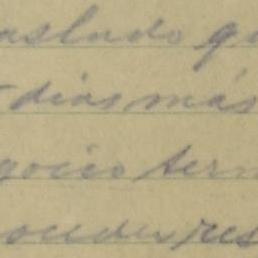 aslado qu
dias más
gocio term
onder res